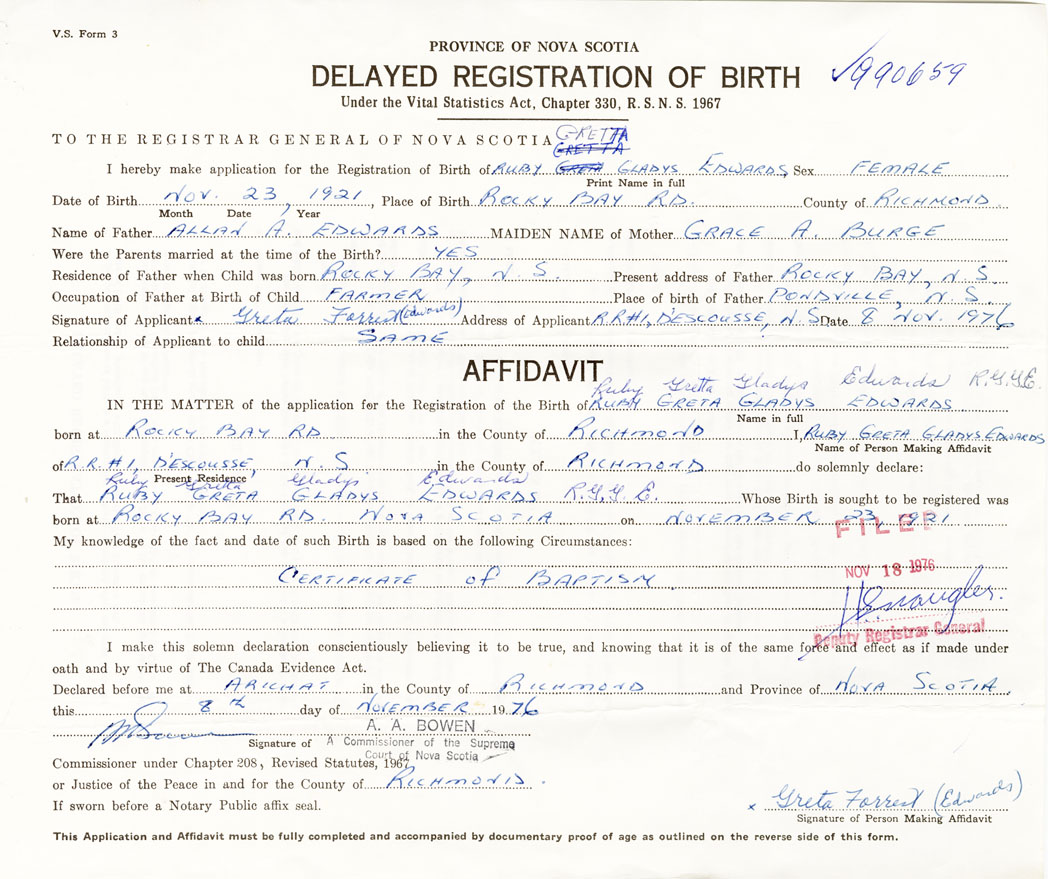 V.S. Form 3
PROVINCE OF NOVA SCOTIA
DELAYED REGISTRATION OF BIRTH
√990659
Under the Vital Statistics Act, Chapter 330, R. S. N. S. 1967
TO THE REGISTRAR GENERAL OF NOVA SCOTIA
GRETTA
GRETTA
I hereby make application for the Registration of Birth of RUBY GRETA GLADYS EDWARDS, Sex FEMALE
Print Name in full
Date of Birth NOV. 23, 1921, Place of Birth ROCKY BAY RD. County of RICHMOND
Month Date Year
Name of Father ALLAN A. EDWARDS MAIDEN NAME of Mother GRACE A. BURGE
Were the Parents married at the time of the Birth? YES
Residence of Father when Child was born ROCKY BAY, N.S. Present address of Father ROCKY BAY, N.S
Occupation of Father at Birth of Child FARMER Place of birth of Father PONDVILLE, N.S.
Signature of Applicant x Greta Forrest (Edwards) Address of Applicant R.R#1, D'ESCOUSSE, N.S Date 8 NOV. 1976
Relationship of Applicant to child SAME
AFFIDAVIT
Ruby Gretta Gladys Edwards R.G.G.E.
IN THE MATTER of the application for the Registration of the Birth of RUBY GRETA GLADYS EDWARDS
Name in full
born at ROCKY BAY RD in the County of RICHMOND I, RUBY GRETA GLADYS EDWARDS
Name of Person Making Affidavit
of R.R#1, D'ESCOUSSE, N.S. in the County of RICHMOND do solemnly declare:
Present Residence
Ruby Gretta Gladys Edwards
That RUBY GRETA GLADYS EDWARDS R.G.G.E. Whose Birth is sought to be registered was
born at ROCKY BAY RD. NOVA SCOTIA on NOVEMBER 23, 1921
FILED
My knowledge of the fact and date of such Birth is based on the following Circumstances:
NOV 18 1976
CERTIFICATE of BAPTISM
Deputy Registrar General
I make this solemn declaration conscientiously believing it to be true, and knowing that it is of the same force and effect as if made under
oath and by virtue of The Canada Evidence Act.
Declared before me at ARICHAT in the County of RICHMOND and Province of NOVA SCOTIA
this 8th day of NOVEMBER 1976
A. A. BOWEN
Signature of A Commissioner of the Supreme
Court of Nova Scotia
Commissioner under Chapter 208, Revised Statutes, 1967
or Justice of the Peace in and for the County of RICHMOND.
If sworn before a Notary Public affix seal.
x Greta Forrest (Edwards)
Signature of Person Making Affidavit
This Application and Affidavit must be fully completed and accompanied by documentary proof of age as outlined on the reverse side of this form.